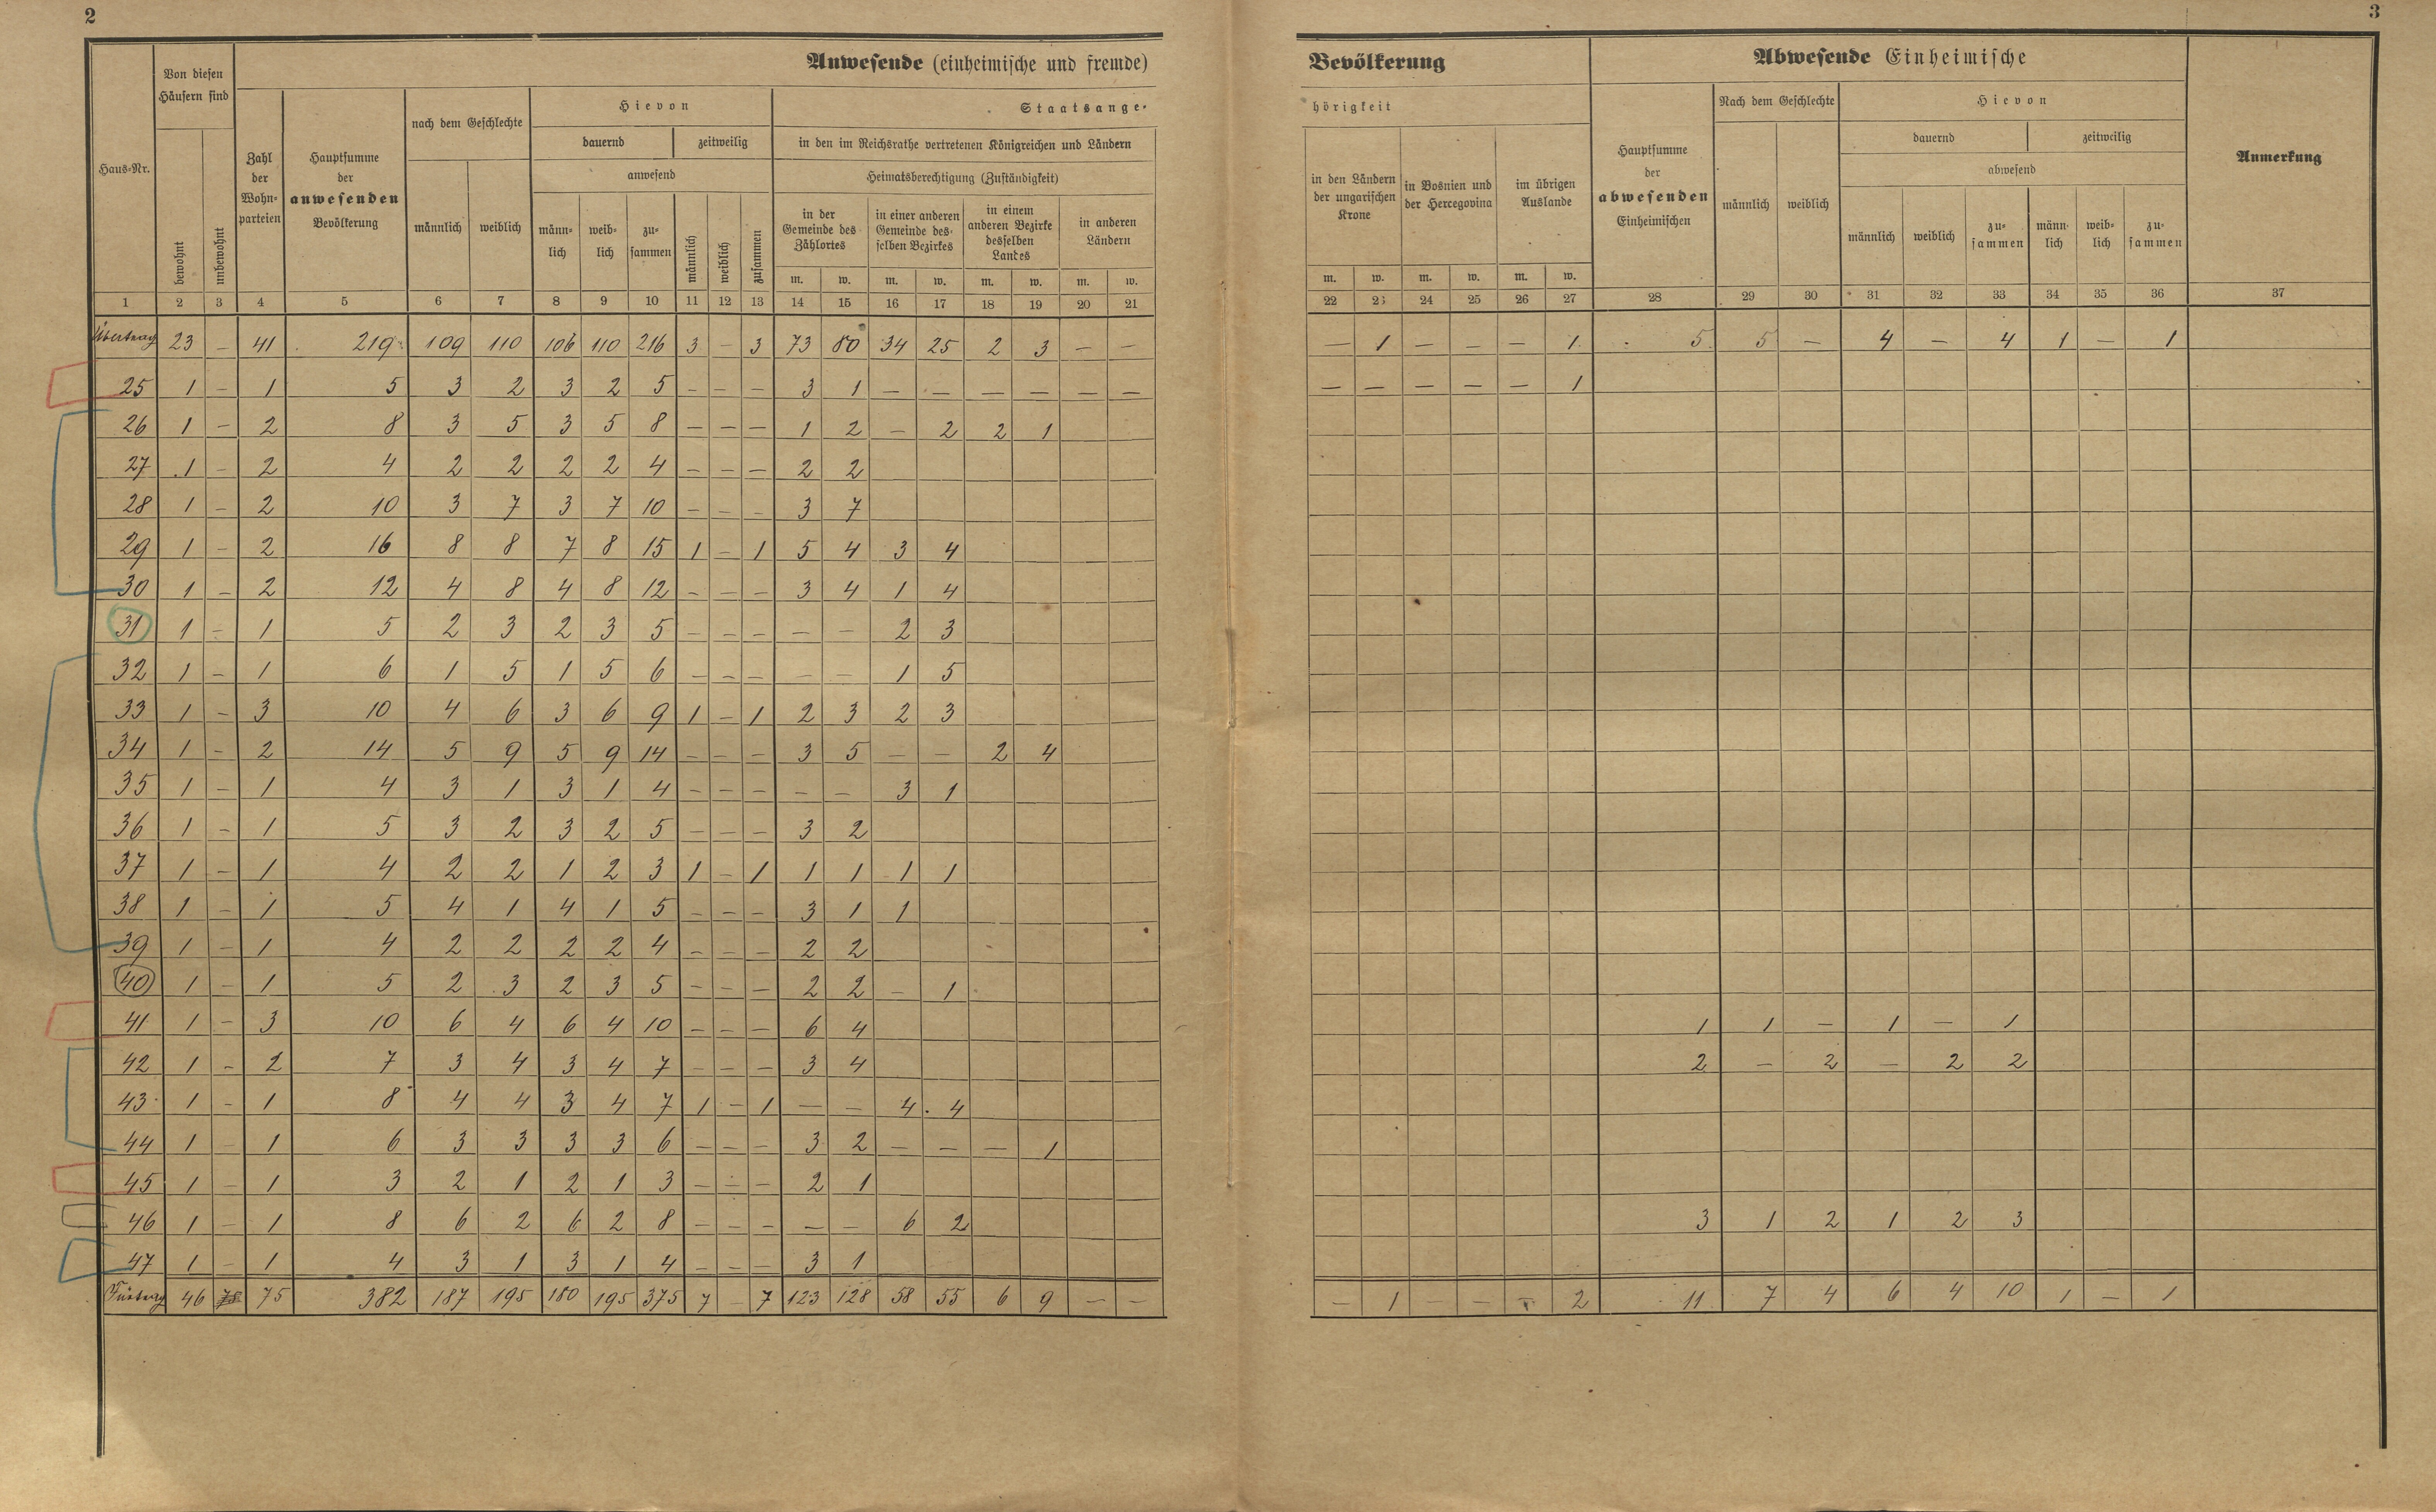 2
3
Anwesende (einheimische und fremde) Bevölkerung
Abwesende Einheimische
Anmerkung
Haus-Nr.
Von diesen Häusern sind
bewohnt
unbewohnt
Zahl der Wohn-parteien
Hauptsumme der anwesenden Bevölkerung
nach dem Geschlechte
männlich
weiblich
Hievon
dauernd
zeitweilig
anwesend
männ-lich
weib-lich
zu-sammen
männlich
weiblich
zusammen
Staatsange-hörigkeit
in den im Reichsrathe vertretenen Königreichen und Ländern
Heimatsberechtigung (Zuständigkeit)
in der Gemeinde des Zählortes
in einer anderen Gemeinde des-selben Bezirkes
in einem anderen Bezirke desselben Landes
in anderen Ländern
in den Ländern der ungarischen Krone
in Bosnien und der Hercegovina
im übrigen Auslande
m. w. m. w. m. w. m. w. m. w. m. w. m. w.
Hauptsumme der abwesenden Einheimischen
Nach dem Geschlechte
männlich
weiblich
Hievon
dauernd
zeitweilig
abwesend
männlich
weiblich
zu-sammen
männ-lich
weib-lich
zu-sammen
1 2 3 4 5 6 7 8 9 10 11 12 13 14 15 16 17 18 19 20 21 22 23 24 25 26 27 28 29 30 31 32 33 34 35 36 37
Übertrag 23 – 41 219 109 110 106 110 216 3 – 3 73 80 34 25 2 3 – – – 1 – – – 1 5 5 – 4 – 4 1 – 1
25 1 – 1 5 3 2 3 2 5 – – – 3 1 – – – – – – – – – – – 1
26 1 – 2 8 3 5 3 5 8 – – – 1 2 – 2 2 1
27 1 – 2 4 2 2 2 2 4 – – – 2 2
28 1 – 2 10 3 7 3 7 10 – – – 3 7
29 1 – 2 16 8 8 7 8 15 1 – 1 5 4 3 4
30 1 – 2 12 4 8 4 8 12 – – – 3 4 1 4
31 1 – 1 5 2 3 2 3 5 – – – – – 2 3
32 1 – 1 6 1 5 1 5 6 – – – – – 1 5
33 1 – 3 10 4 6 3 6 9 1 – 1 2 3 2 3
34 1 – 2 14 5 9 5 9 14 – – – 3 5 – – 2 4
35 1 – 1 4 3 1 3 1 4 – – – – – 3 1
36 1 – 1 5 3 2 3 2 5 – – – 3 2
37 1 – 1 4 2 2 1 2 3 1 – 1 1 1 1 1
38 1 – 1 5 4 1 4 1 5 – – – 3 1 1
39 1 – 1 4 2 2 2 2 4 – – – 2 2
40 1 – 1 5 2 3 2 3 5 – – – 2 2 – 1
41 1 – 3 10 6 4 6 4 10 – – – 6 4 1 1 – 1 – 1
42 1 – 2 7 3 4 3 4 7 – – – 3 4 2 – 2 – 2 2
43 1 – 1 8 4 4 3 4 7 1 – 1 – – 4 4
44 1 – 1 6 3 3 3 3 6 – – – 3 2 – – – 1
45 1 – 1 3 2 1 2 1 3 – – – 2 1
46 1 – 1 8 6 2 6 2 8 – – – – – 6 2 3 1 2 1 2 3
47 1 – 1 4 3 1 3 1 4 – – – 3 1
46 75 382 187 195 180 195 375 7 – 7 123 128 58 55 6 9 – – – 1 – – 2 11 7 4 6 4 10 1 – 1